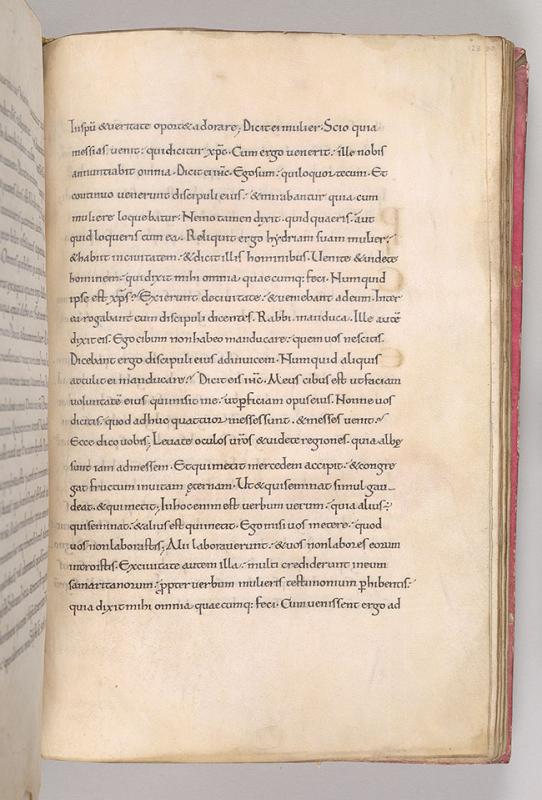 Inspū &veritate oport& adorare; Dicit ei mulier· Scio quia
messias venit· qui dicitur xp̄c· Cum ergo venerit· ille nobis
annuntiabit omnia· Dicit ei ihc̄· Ego sum· qui loquor tecum· Et
continuo venerunt discipuli eius· & mirabantur quia cum
muliere loquebatur· Nemo tamen dixit· quid quaeris· aut
quid loqueris cum ea· Reliquit ergo hydriam suam mulier·
& habiit in civitatem· & dicit illis hominibus· Uenite & videte
hominem· qui dixit mihi omnia quaecumq: feci· Numquid
ipse est xp̄s? Exierunt de civitate· & veniebant ad eum· Inter
ea rogabant eum discipuli dicentes· Rabbi· manduca· Ille autē
dixit eis· Ego cibum non habeo manducare· quem vos nescitis·
Dicebant ergo discipuli eius ad invicem· Numquid aliquis
attulit ei manducare? Dicit eis ihc̄· Meus cibus est ut faciam
voluntatē eius qui misit me· ut p̱ficiam opus eius· Nonne vos
dicitis· quod adhuc quattuor menses sunt· & messes venit?
Ecce dico vobis; Levate oculos vr̄os & videte regiones· quia albę
sunt iam ad messem· Et qui metit mercedem accipit· & congre
gat fructum in vitam ęternam· Ut & qui seminat simul gau
deat· & qui metit; In hoc enim est verbum verum· quia alius
qui seminat· & alius est qui metit· Ego misi vos metere· quod
vos non laborastis; Alii laboraverunt· & vos non labores eorum
introistis· Ex civitate autem illa· multi crediderunt in eum
samaritanorum· ꝓpter verbum mulieris testimonium p̱hibentis·
quia dixit mihi omnia quaecumq: feci· Cum venissent ergo ad